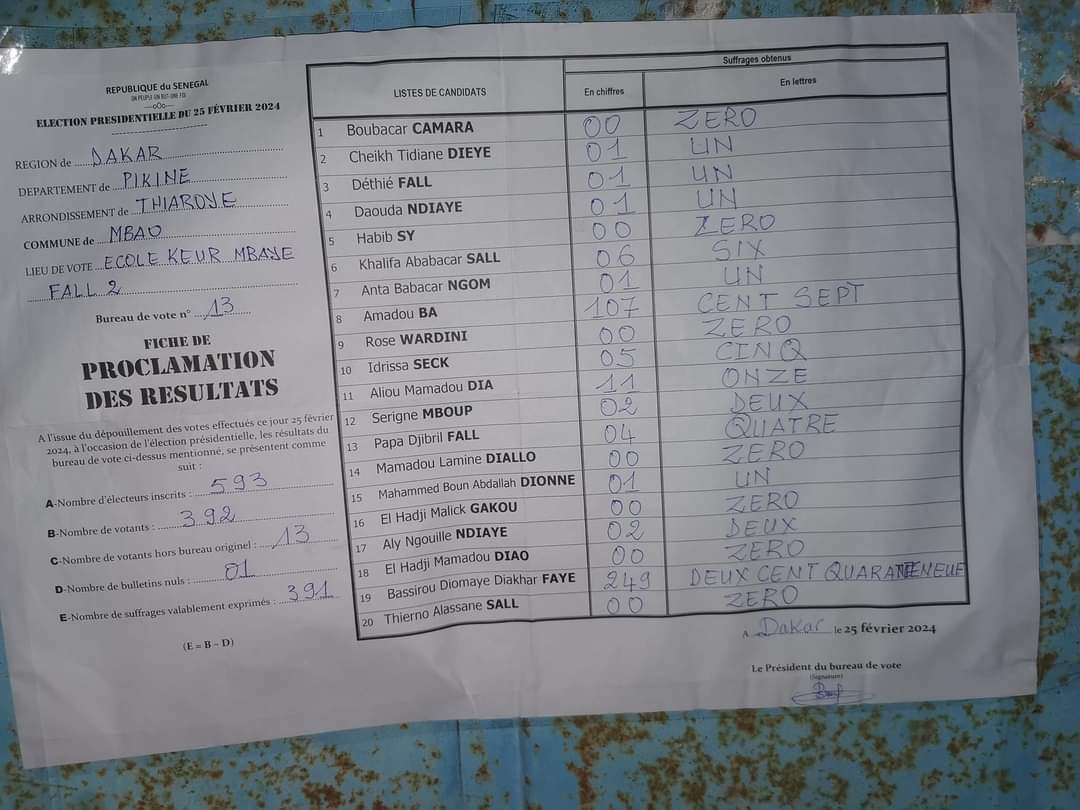 REPUBLIQUE du SENEGAL
UN PEUPLE UN BUT-UNE FOI
----oOo----
ELECTION PRESIDENTIELLE DU 25 FÉVRIER 2024
REGION de DAKAR
DEPARTEMENT de PIKINE
ARRONDISSEMENT de THIAROYE
COMMUNE de MBAO
LIEU DE VOTE ECOLE KEUR MBAYE
FALL 2
Bureau de vote n° 13
FICHE DE
PROCLAMATION
DES RESULTATS
A l'issue du dépouillement des votes effectués ce jour 25 février
2024, à l'occasion de l'élection présidentielle, les résultats du
bureau de vote ci-dessus mentionné, se présentent comme
suit :
A-Nombre d'électeurs inscrits : 593
B-Nombre de votants : 392
C-Nombre de votants hors bureau originel : 13
D-Nombre de bulletins nuls : 01
E-Nombre de suffrages valablement exprimés : 391
(E = B – D)
LISTES DE CANDIDATS
Suffrages obtenus
En chiffres En lettres
1 Boubacar CAMARA 00 ZERO
2 Cheikh Tidiane DIEYE 01 UN
3 Déthié FALL 01 UN
4 Daouda NDIAYE 01 UN
5 Habib SY 00 ZERO
6 Khalifa Ababacar SALL 06 SIX
7 Anta Babacar NGOM 01 UN
8 Amadou BA 107 CENT SEPT
9 Rose WARDINI 00 ZERO
10 Idrissa SECK 05 CINQ
11 Aliou Mamadou DIA 11 ONZE
12 Serigne MBOUP 02 DEUX
13 Papa Djibril FALL 04 QUATRE
14 Mamadou Lamine DIALLO 00 ZERO
15 Mahammed Boun Abdallah DIONNE 01 UN
16 El Hadji Malick GAKOU 00 ZERO
17 Aly Ngouille NDIAYE 02 DEUX
18 El Hadji Mamadou DIAO 00 ZERO
19 Bassirou Diomaye Diakhar FAYE 249 DEUX CENT QUARANTENEUF
20 Thierno Alassane SALL 00 ZERO
A Dakar le 25 février 2024
Le Président du bureau de vote
(Signature)